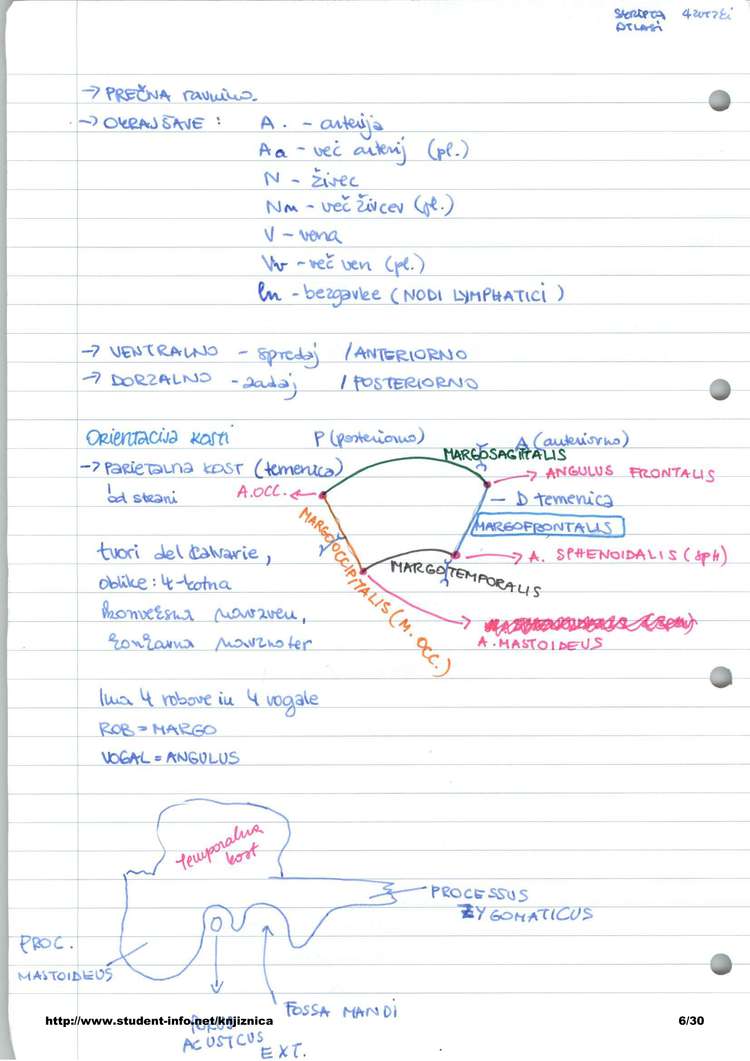 SKRIPTA 4 zvezki
ATLASI
→ PREČNA ravnina.
→ OKRAJŠAVE : A. - arterija
Aa - več arterij (pl.)
N - živec
Nn - več živcev (pl.)
V - vena
Vv - več ven (pl.)
ln - bezgavke (NODI LYMPHATICI)
→ VENTRALNO - spredaj / ANTERIORNO
→ DORZALNO - zadaj / POSTERIORNO
Orientacija kosti P (posteriorno) A (anteriorno)
MARGO SAGITALIS
→ PARIETALNA KOST (temenica)
od strani
A.OCC.
ANGULUS FRONTALIS
D temenica
MARGO FRONTALIS
MARGO OCCIPITALIS (M. OCC.)
tvori del kalvarie,
oblike: 4-kotna
konveksna navzven,
konkavna navznoter
A. SPHENOIDALIS (sph)
MARGO TEMPORALIS
A. MASTOIDEUS
Ima 4 robove in 4 vogale
ROB = MARGO
VOGAL = ANGULUS
temporalna
kost
PROCESSUS
ZYGOMATICUS
PROC.
MASTOIDEUS
FOSSA MANDI
PORUS
ACUSTCUS
EXT.
http://www.student-info.net/knjiznica
6/30